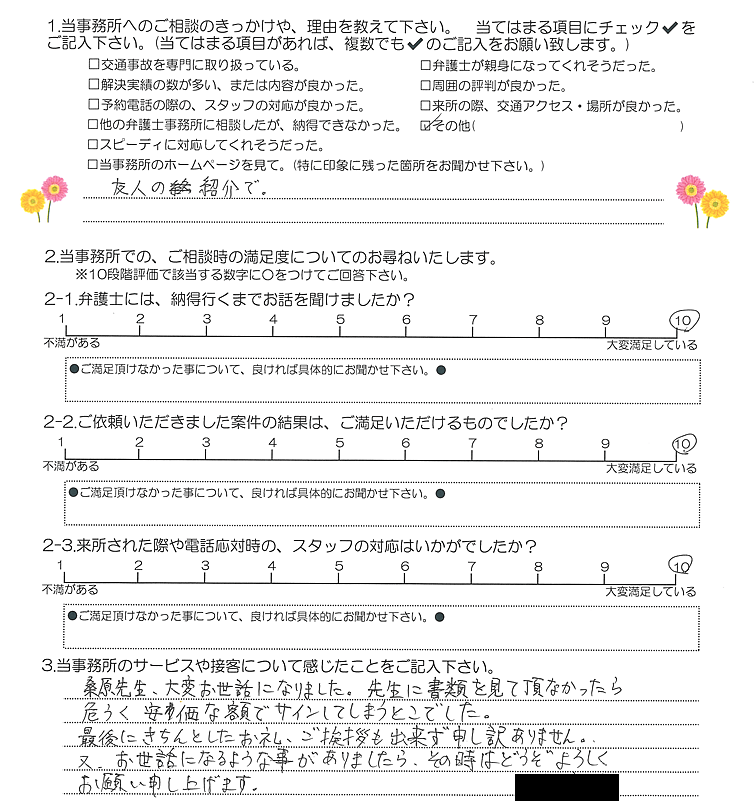 1.当事務所へのご相談のきっかけや、理由を教えて下さい。 当てはまる項目にチェック✔を
ご記入下さい。(当てはまる項目があれば、複数でも✔のご記入をお願い致します。)
□交通事故を専門に取り扱っている。 □弁護士が親身になってくれそうだった。
□解決実績の数が多い、または内容が良かった。 □周囲の評判が良かった。
□予約電話の際の、スタッフの対応が良かった。 □来所の際、交通アクセス・場所が良かった。
□他の弁護士事務所に相談したが、納得できなかった。 ☑その他( )
□スピーディに対応してくれそうだった。
□当事務所のホームページを見て。(特に印象に残った箇所をお聞かせ下さい。)
友人の紹介で。
2.当事務所での、ご相談時の満足度についてのお尋ねいたします。
※10段階評価で該当する数字に〇をつけてご回答下さい。
2-1.弁護士には、納得行くまでお話を聞けましたか?
1 2 3 4 5 6 7 8 9 10
不満がある 大変満足している
●ご満足頂けなかった事について、良ければ具体的にお聞かせ下さい。●
2-2.ご依頼いただきました案件の結果は、ご満足いただけるものでしたか?
1 2 3 4 5 6 7 8 9 10
不満がある 大変満足している
●ご満足頂けなかった事について、良ければ具体的にお聞かせ下さい。●
2-3.来所された際や電話応対時の、スタッフの対応はいかがでしたか?
1 2 3 4 5 6 7 8 9 10
不満がある 大変満足している
●ご満足頂けなかった事について、良ければ具体的にお聞かせ下さい。●
3.当事務所のサービスや接客について感じたことをご記入下さい。
桑原先生、大変お世話になりました。先生に書類を見て頂なかったら
危うく安価な額でサインしてしまうとこでした。
最後にきちんとしたお礼、ご挨拶も出来ず申し訳ありません。
又、お世話になるような事がありましたら、その時はどうぞよろしく
お願い申し上げます。